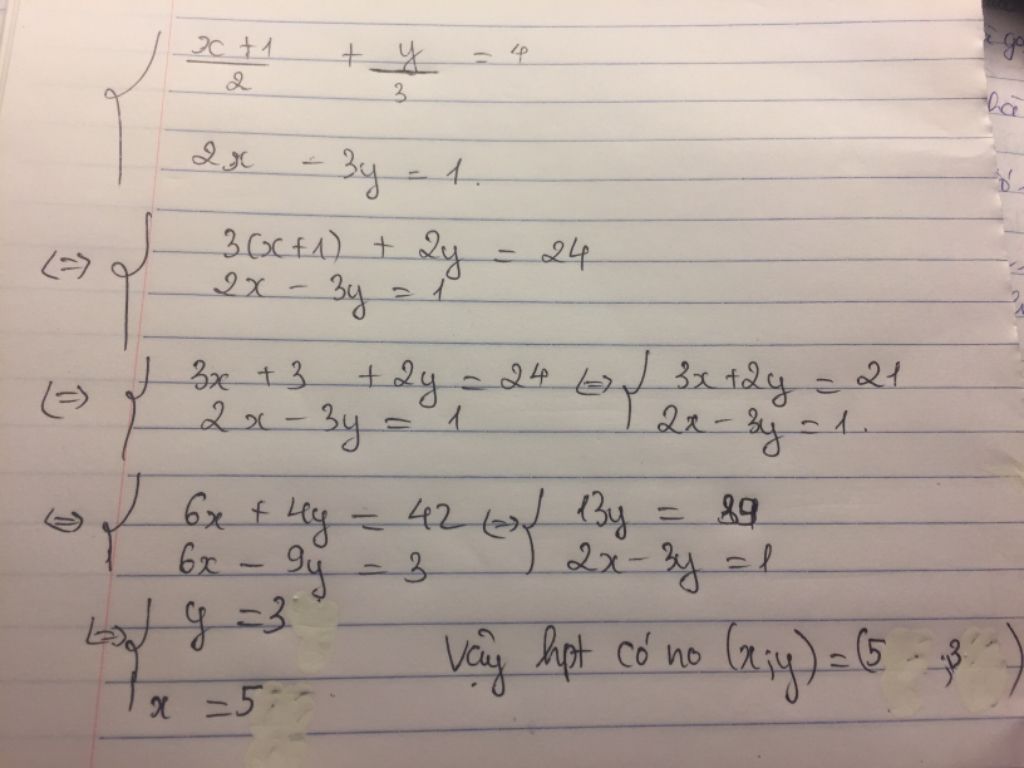 { x+1/2 + y/3 = 4
2x - 3y = 1.
<=> { 3(x+1) + 2y = 24
2x - 3y = 1
<=> { 3x + 3 + 2y = 24 <=> { 3x + 2y = 21
2x - 3y = 1 2x - 3y = 1.
<=> { 6x + 4y = 42 <=> { 13y =
6x - 9y = 3 2x - 3y = 1
<=> { y = 3
x = 5
Vậy hpt có no (x;y) = (5 ;3 )